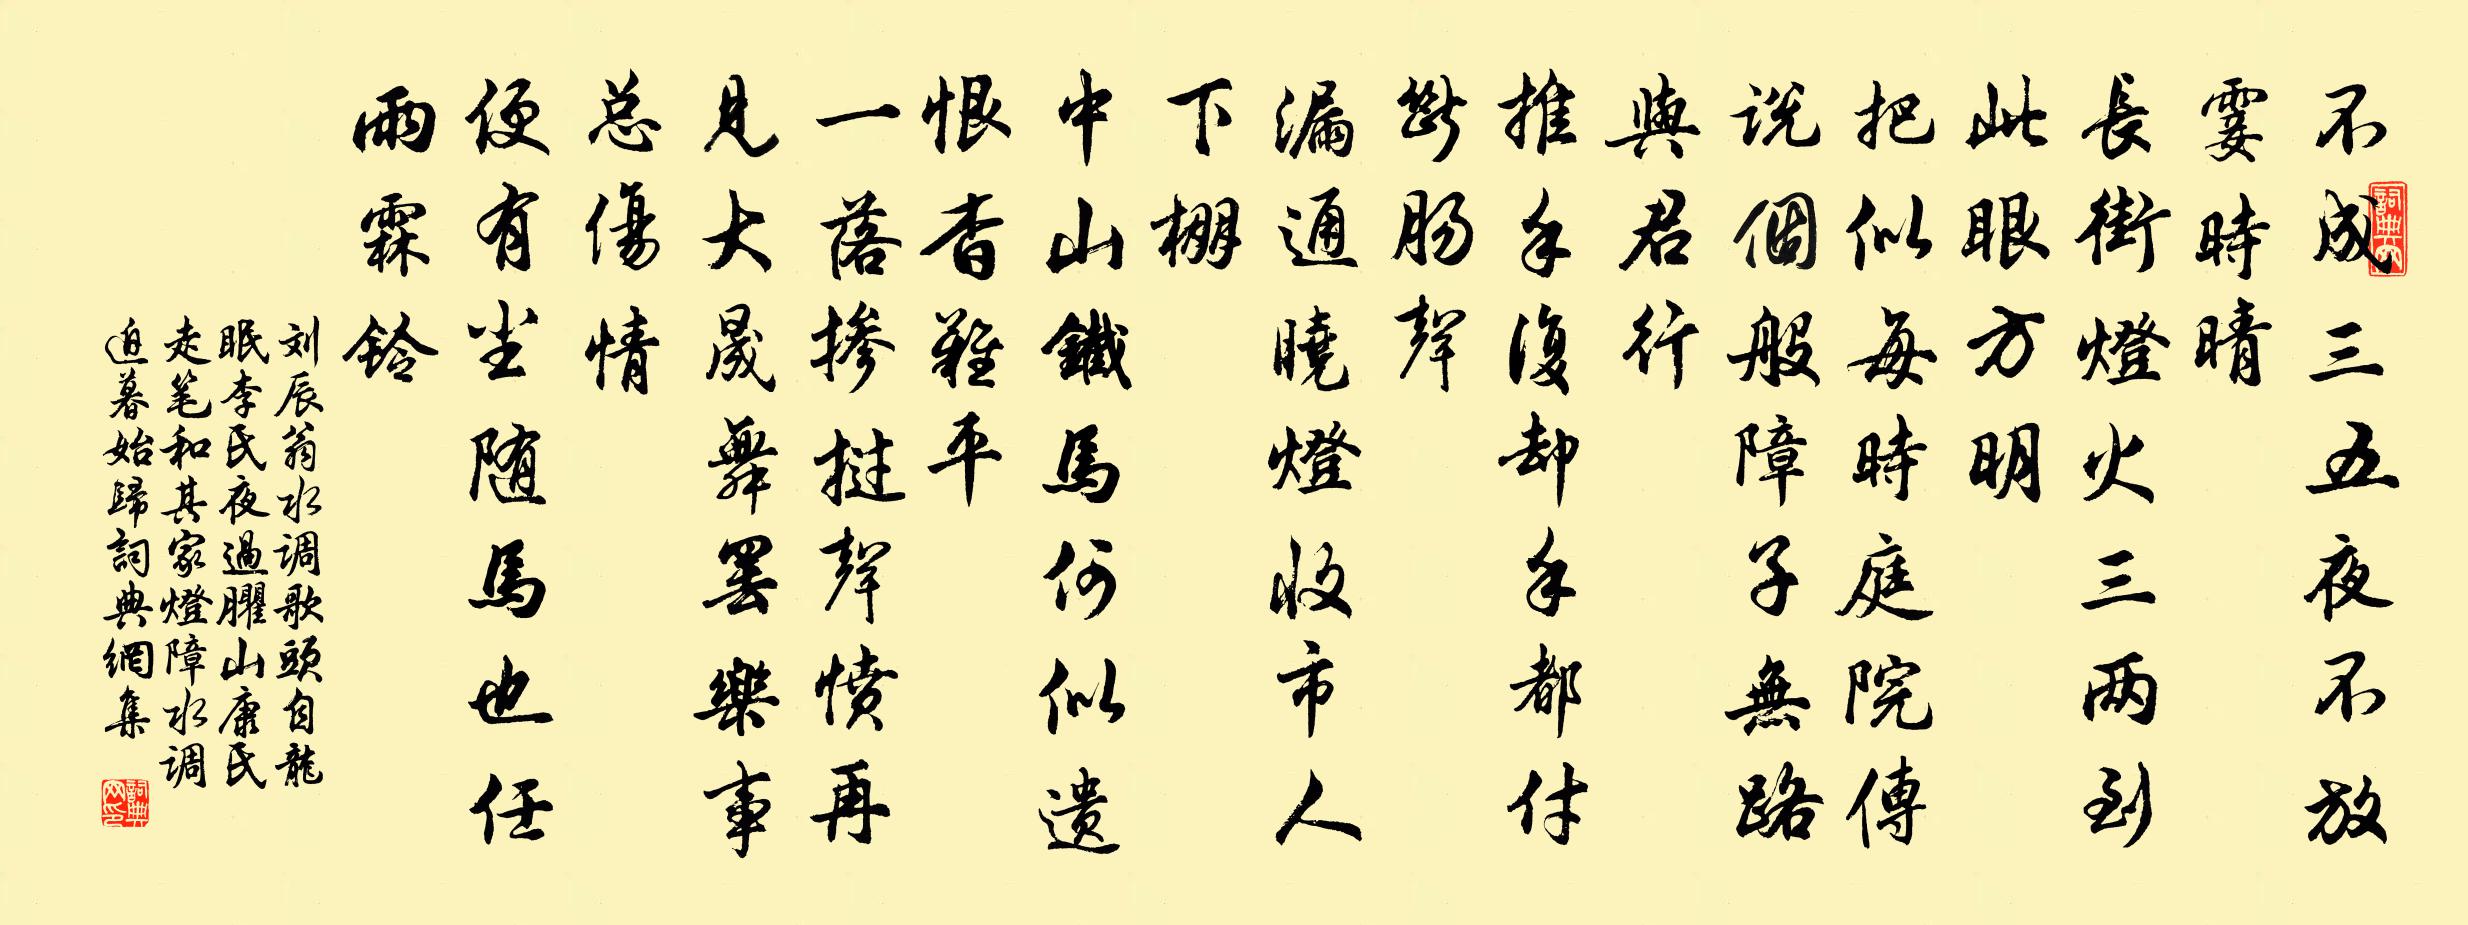 不成三五夜不放
霎時晴
長街燈火三兩到
此眼方明
把似每時庭院傳
説個般障子無路
與君行
推手復却手都付
斷肠聲
漏通曉燈收市人
下棚
中山鐵馬何似遗
恨杳難平
一落掺撾聲愤再
見大晟舞罢樂事
总傷情
便有坐随馬也任
雨霖鈴
刘辰翁水调歌頭自龍
眠李氏夜過臞山康氏
走笔和其家燈障水调
迫暮始歸詞典網集